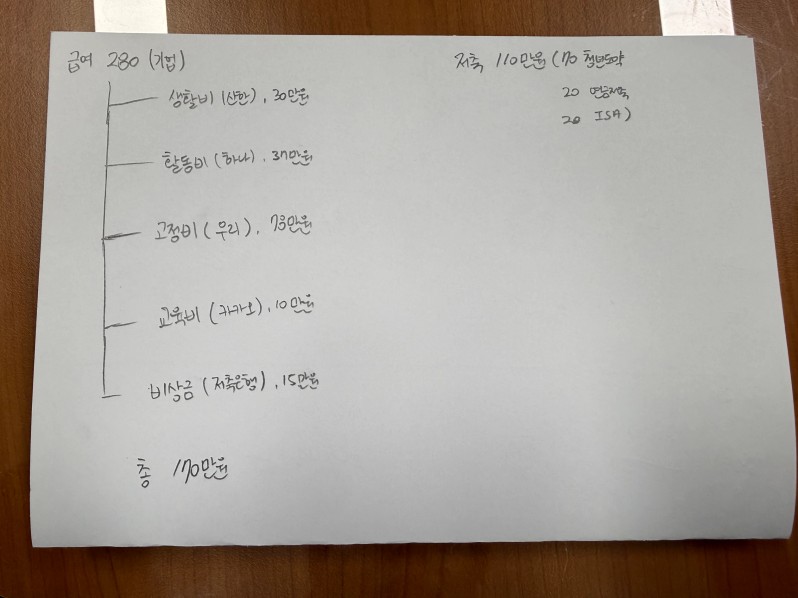 급여 280 (기업)
생활비 (신한), 30만원
활동비 (하나), 37만원
고정비 (우리), 78만원
교육비 (카카오), 10만원
비상금 (저축은행), 15만원
총 170만원
저축 110만원 (70 청년도약
20 연금저축
20 ISA)